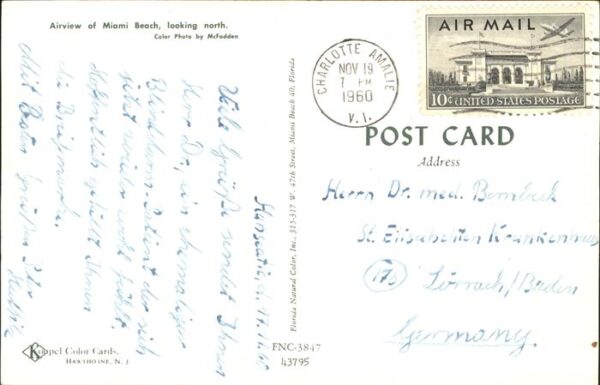 Airview of Miami Beach, looking north.
Color Photo by McFadden
Hanseatic, d. 17.11.60
Viele Grüße sendet Ihnen
Herr Dr., ein ehemaliger
Blinddarm-Patient der sich
jetzt wieder wohl fühlt.
Hoffentlich gefällt Ihnen
die Briefmarke.
Mit besten Grüßen
Florida Natural Color, Inc. 315-317 W. 47th Street, Miami Beach 40, Florida
Koppel Color Cards.
HAWTHORNE, N. J.
FNC-3847
43795
CHARLOTTE AMALIE
NOV 19
7 PM
1960
V. I.
AIR MAIL
10¢ UNITED STATES POSTAGE
POST CARD
Address
Herrn Dr. med. Bombeck
St. Elisabethen Krankenhaus
(17b) Lörrach/Baden
Germany.